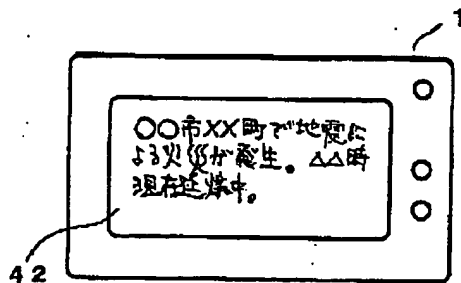 1
〇〇市XX町で地震に
よる火災が発生。△△時
現在延焼中。
42